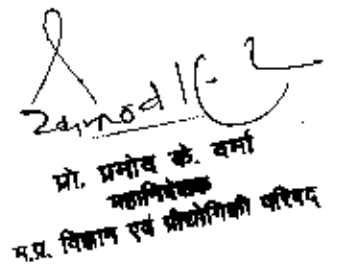 प्रो. प्रमोद के. वर्मा
महानिदेशक
म.प्र. विज्ञान एवं प्रौद्योगिकी परिषद्